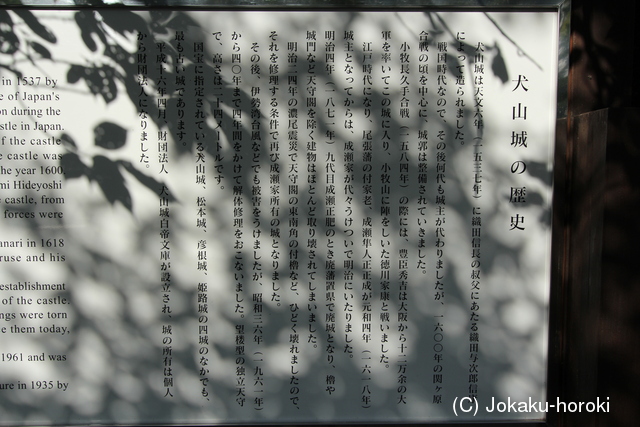 犬山城の歴史
犬山城は天文六年（一五三七年）に織田信長の叔父にあたる織田与次郎信
によって造られました。
戦国時代なので、その後何代も城主が代わりましたが、一六〇〇年の関ヶ原
合戦の頃を中心に、城郭は整備されていきました。
小牧長久手合戦（一五八四年）の際には、豊臣秀吉は大阪から十二万余の大
軍を率いてこの城に入り、小牧山に陣をしいた徳川家康と戦いました。
江戸時代になり、尾張藩の付家老、成瀬隼人正正成が元和四年（一六一八年）
城主となってからは、成瀬家が代々うけついで明治にいたりました。
明治四年（一八七一年）九代目成瀬正肥のとき廃藩置県で廃城となり、櫓や
城門など天守閣を除く建物はほとんど取り壊されてしまいました。
明治二四年の濃尾震災で天守閣の東南角の付櫓など、ひどく壊れましたので、
それを修理する条件で再び成瀬家所有の城となりました。
その後、伊勢湾台風などでも被害をうけましたが、昭和三六年（一九六一年）
から四〇年まで四年間をかけて解体修理をおこないました。望楼型の独立天守
で、高さは二十四メートルです。
国宝に指定されている犬山城、松本城、彦根城、姫路城の四城のなかでも、
最も古い城であります。
平成十六年四月、財団法人 犬山城白帝文庫が設立され、城の所有は個人
から財団法人になりました。
in 1537 by
e of Japan's
on during the
stle in Japan.
f the castle
e castle was
the year 1600.
mi Hideyoshi
e castle, from
forces were
anari in 1618
ruse and his
establishment
of the castle.
ngs were torn
e them today,
1961 and was
ure in 1935 by
(C) Jokaku-horoki